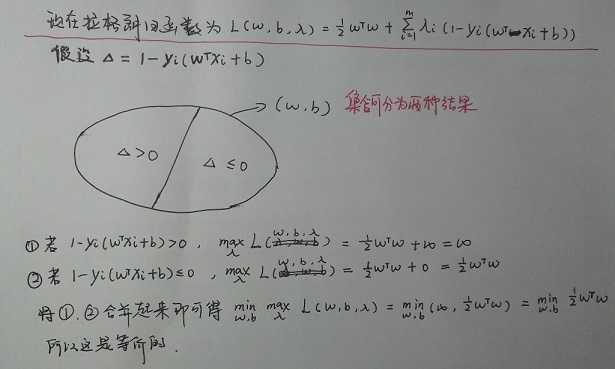 现在拉格朗日函数为 L(w,b,λ) = ½ wᵀw + ∑ᵢ₌₁ᵐ λi (1-yi(wᵀxi+b))
假设 Δ = 1-yi(wᵀxi+b)
(w,b) 集合可分为两种结果
Δ>0 Δ≤0
① 若 1-yi(wᵀxi+b)>0 , max_λ L(w,b,λ) = ½wᵀw + ∞ = ∞
② 若 1-yi(wᵀxi+b)≤0 , max_λ L(w,b,λ) = ½wᵀw + 0 = ½wᵀw
将①,②合并起来即可得 min_{w,b} max_λ L(w,b,λ) = min_{w,b} (∞, ½wᵀw) = min_{w,b} ½wᵀw
所以这是等价的.